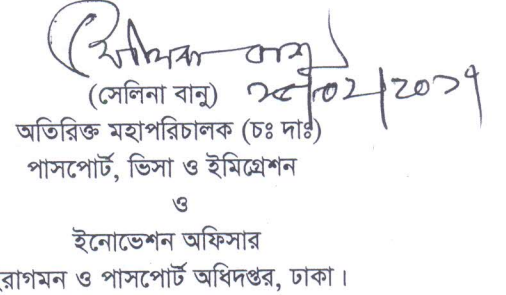 সেলিনা বানু
(সেলিনা বানু)
অতিরিক্ত মহাপরিচালক (চঃ দাঃ)
পাসপোর্ট, ভিসা ও ইমিগ্রেশন
ও
ইনোভেশন অফিসার
রাগমন ও পাসপোর্ট অধিদপ্তর, ঢাকা।